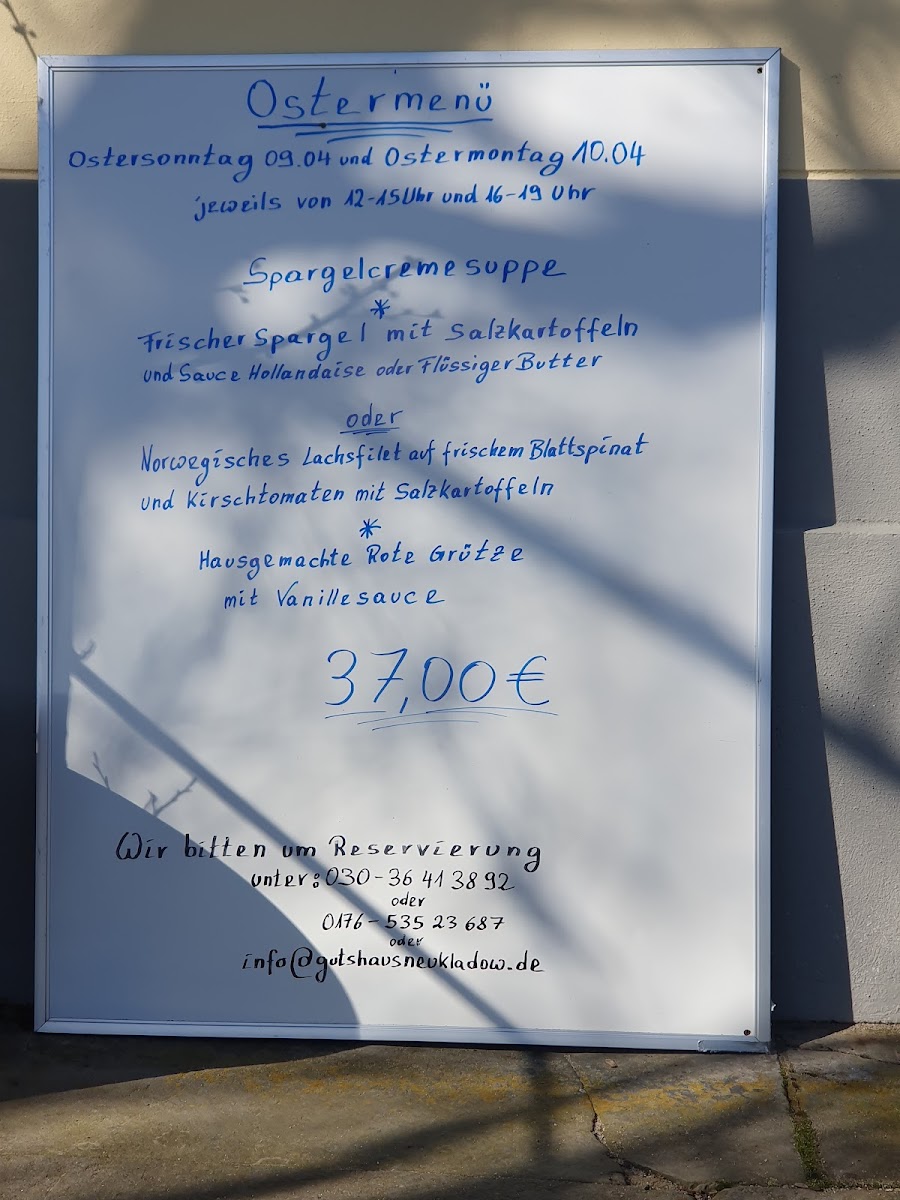 Ostermenü
Ostersonntag 09.04 und Ostermontag 10.04
jeweils von 12-15 Uhr und 16-19 Uhr
Spargelcremesuppe
*
Frischer Spargel mit Salzkartoffeln
und Sauce Hollandaise oder Flüssiger Butter
oder
Norwegisches Lachsfilet auf frischem Blattspinat
und Kirschtomaten mit Salzkartoffeln
*
Hausgemachte Rote Grütze
mit Vanillesauce
37,00€
Wir bitten um Reservierung
unter: 030-36 41 38 92
oder
0176-535 23 687
oder
info@gutshausneukladow.de